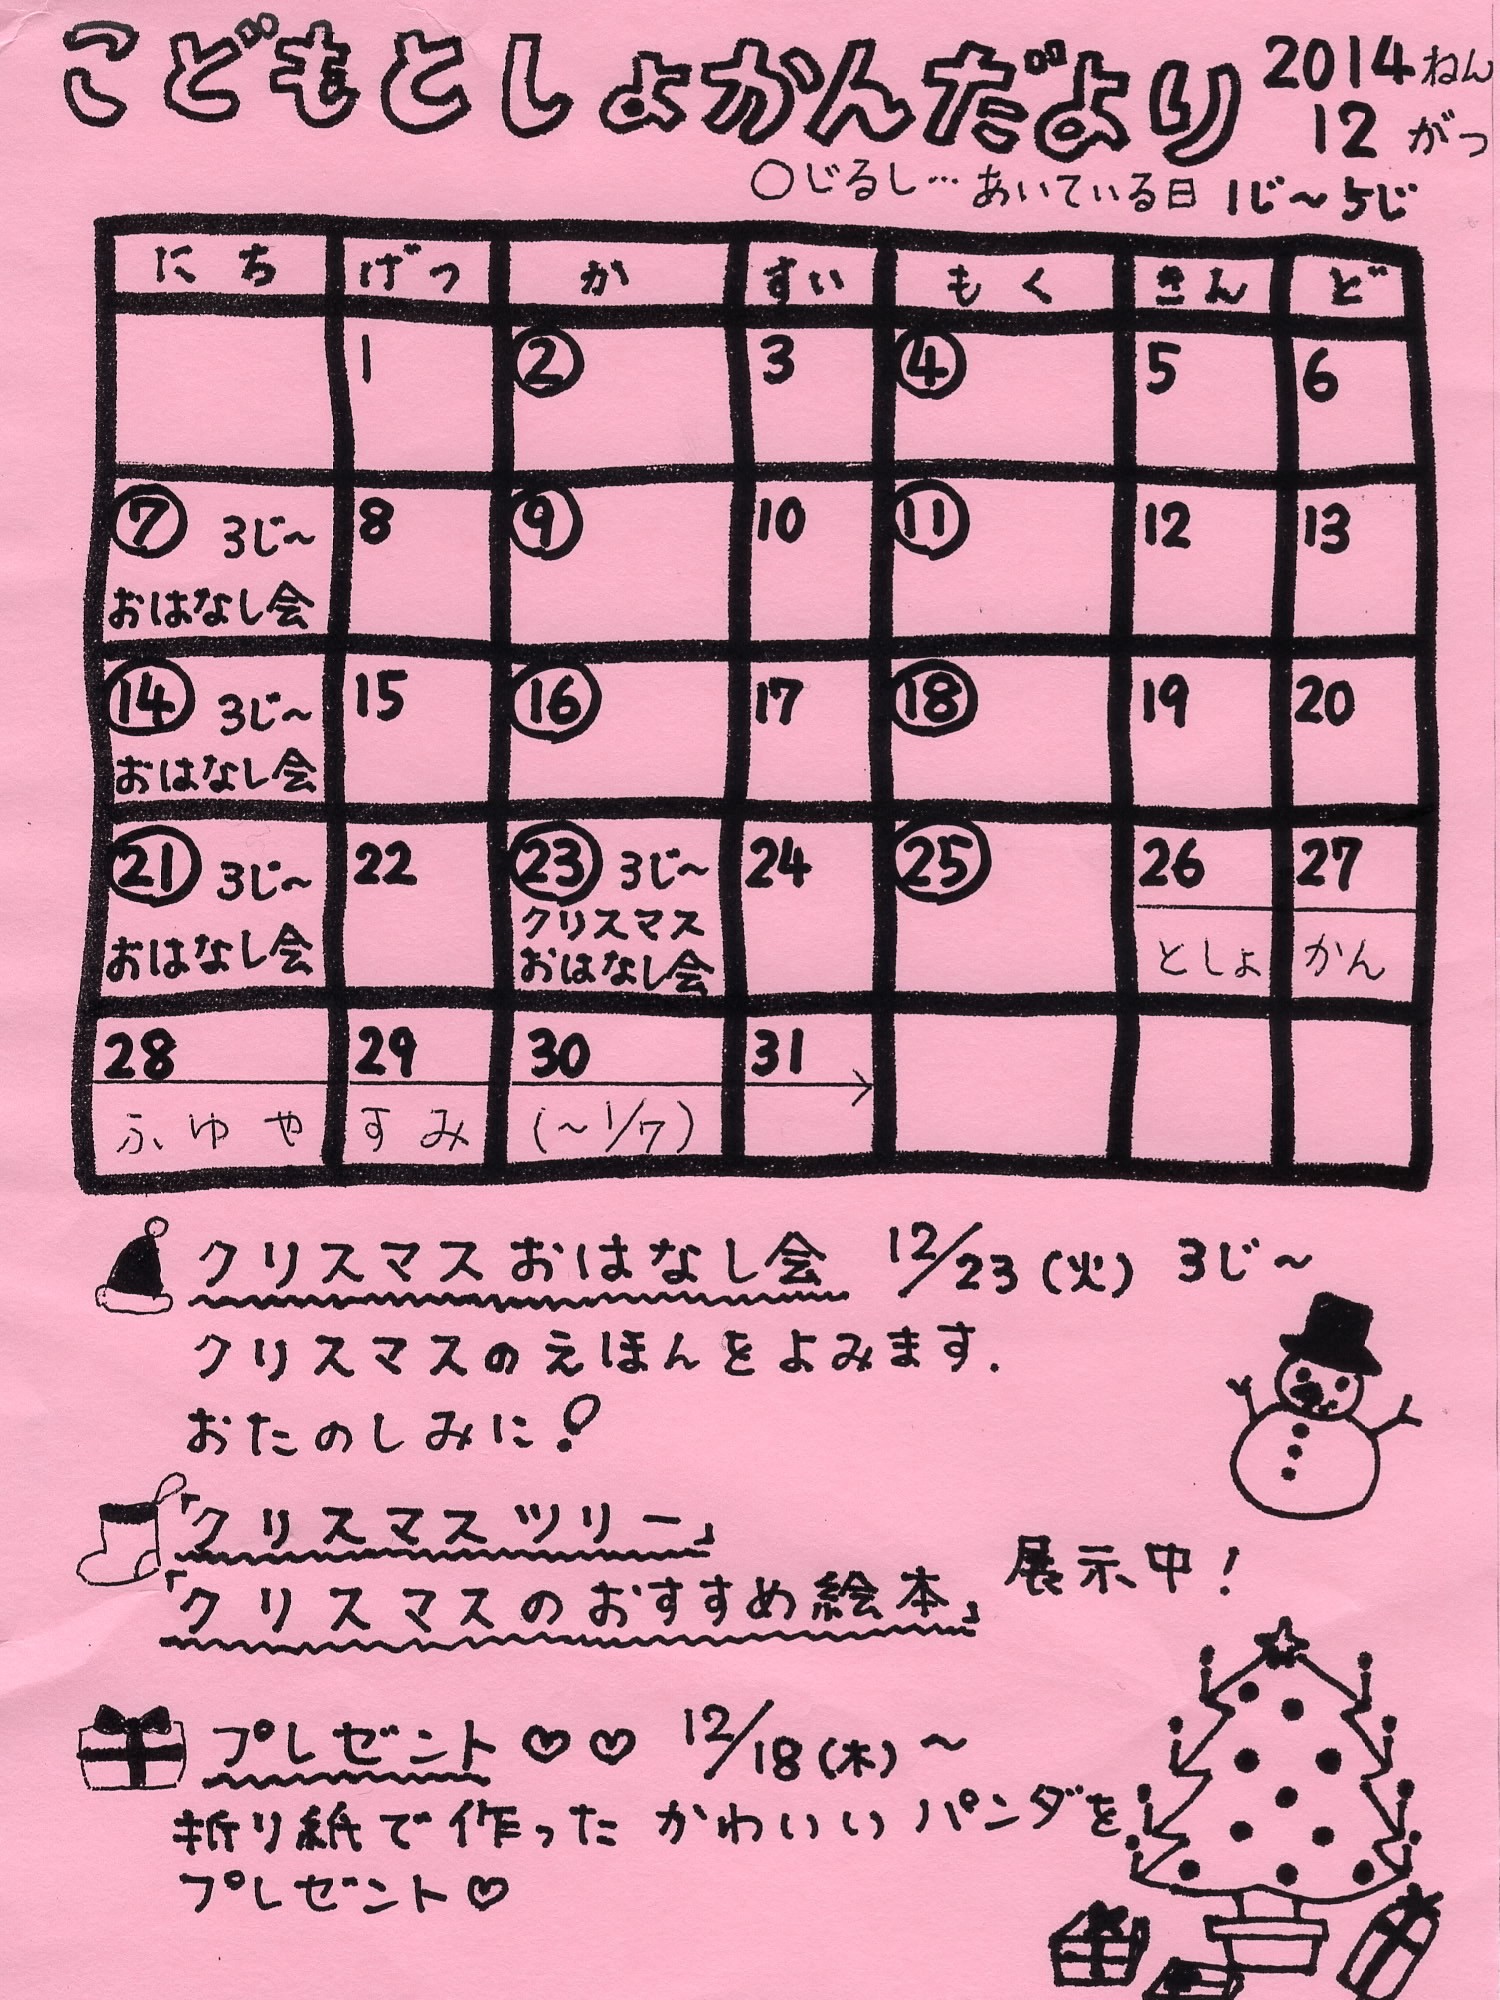 こどもとしょかんだより
2014ねん
12がつ
○じるし…あいている日 1じ～5じ
にち げつ か すい もく きん ど
1 2 3 4 5 6
7 3じ～ 8 9 10 11 12 13
おはなし会
14 3じ～ 15 16 17 18 19 20
おはなし会
21 3じ～ 22 23 3じ～ 24 25 26 27
おはなし会 クリスマス おはなし会 としょ かん
28 29 30 31
ふゆや すみ (～1/7)
クリスマスおはなし会 12/23(火) 3じ～
クリスマスのえほんをよみます.
おたのしみに!
「クリスマスツリー」
「クリスマスのおすすめ絵本」 展示中!
プレゼント♡♡ 12/18(木)～
折り紙で作ったかわいいパンダを
プレゼント♡